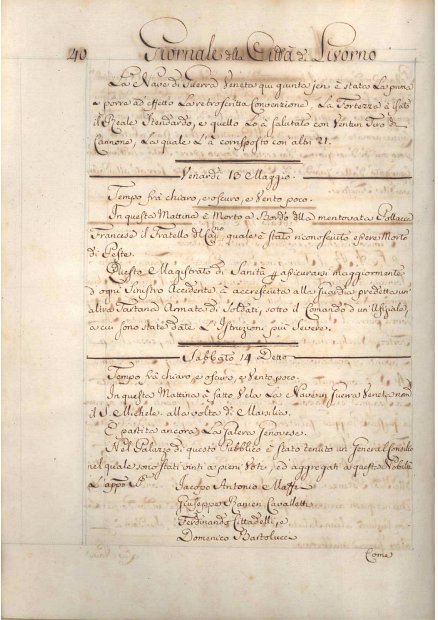 240 Giornale della Città di Livorno
La Nave di Guerra Veneta qui giunta jeri è stata La prima
a porre ad effetto La retroscritta Convenzione, La Fortezza
il Reale Stendardo, e quello Lo à salutato con Ventun Tiro di
Cannone, La quale L'à corrisposto con altri 21.
Venardi 13 Maggio.
Tempo frà chiaro, e oscuro, e Vento poco.
In questa Mattina è Morto a Bordo della mentovata Pollacca
Francese il Fratello del Cap.no quale è stato riconosciuto essere Morto
di Peste.
Questo Magistrato di Sanità p assicurarsi maggiormente
d'ogni Sinistro Accidente à accresciuta alla Guardia predetta un'
altra Tartana Armata di Soldati, sotto il Comando d'un Ufiziale,
a cui sono state date L'Istruzioni più Severe.
Sabbato 14 Detto
Tempo frà chiaro, e oscuro, e Vento poco.
In questa Mattina à fatto Vela La Nave in Guerra Veneta nom.
il S. Michele alla volta di Marsilia.
È partita ancora La Galera Genovese.
Nel Palazzo di questo Pubblico è stato tenuto un General Consilio
nel quale sono stati vinti a pieni Voti, ed aggregati a questa Nobiltà
L'app.
Jacopo Antonio Maffei
Giuseppe Ranieri Cavalletti
Ferdinando Cittadelli, e
Domenico Bartolucci
Come